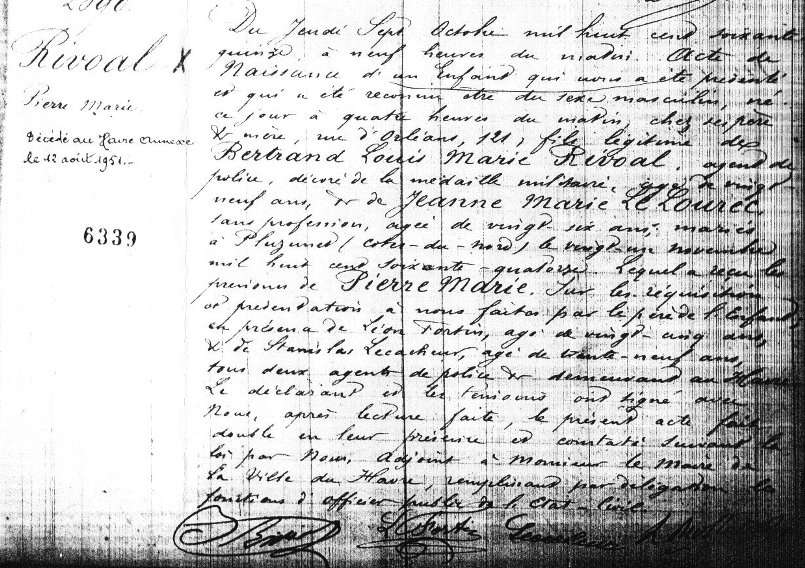 Rivoal X
Pierre Marie
Décédé au Havre Annexe
le 12 août 1951.-
6339
Du Jeudi Sept Octobre mil huit cent soixante
quinze, à neuf heures du matin. Acte de
Naissance d'un Enfant qui nous a été présenté
et qui a été reconnu être du sexe masculin, né
ce jour à quatre heures du matin, chez ses père
& mère, rue d'Orléans, 121, fils légitime de
Bertrand Louis Marie Rivoal, agent de
police, décoré de la médaille militaire, agé de vingt
neuf ans, & de Jeanne Marie Le Lourec,
sans profession, agée de vingt-six ans, mariés
à Pluzunet (Côtes-du-nord) le vingt-un novembre
mil huit cent soixante-quatorze. Lequel a reçu les
prénoms de Pierre Marie. Sur les réquisition
et présentation à nous faites par le père de l'Enfant,
en présence de Léon Fortin, agé de vingt-cinq ans,
& de Stanislas Lecacheur, agé de trente-neuf ans,
tous deux agents de police & demeurant au Havre
Le déclarant et les témoins ont signé avec
Nous, après lecture faite, le présent acte fait
double en leur présence et constaté suivant la
loi par Nous, Adjoint à Monsieur le Maire de
la Ville du Havre, remplissant par délégation les
fonctions d'officier public de l'Etat-Civil.